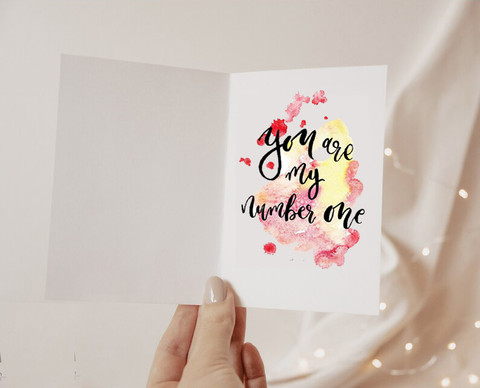 you are
my
number one